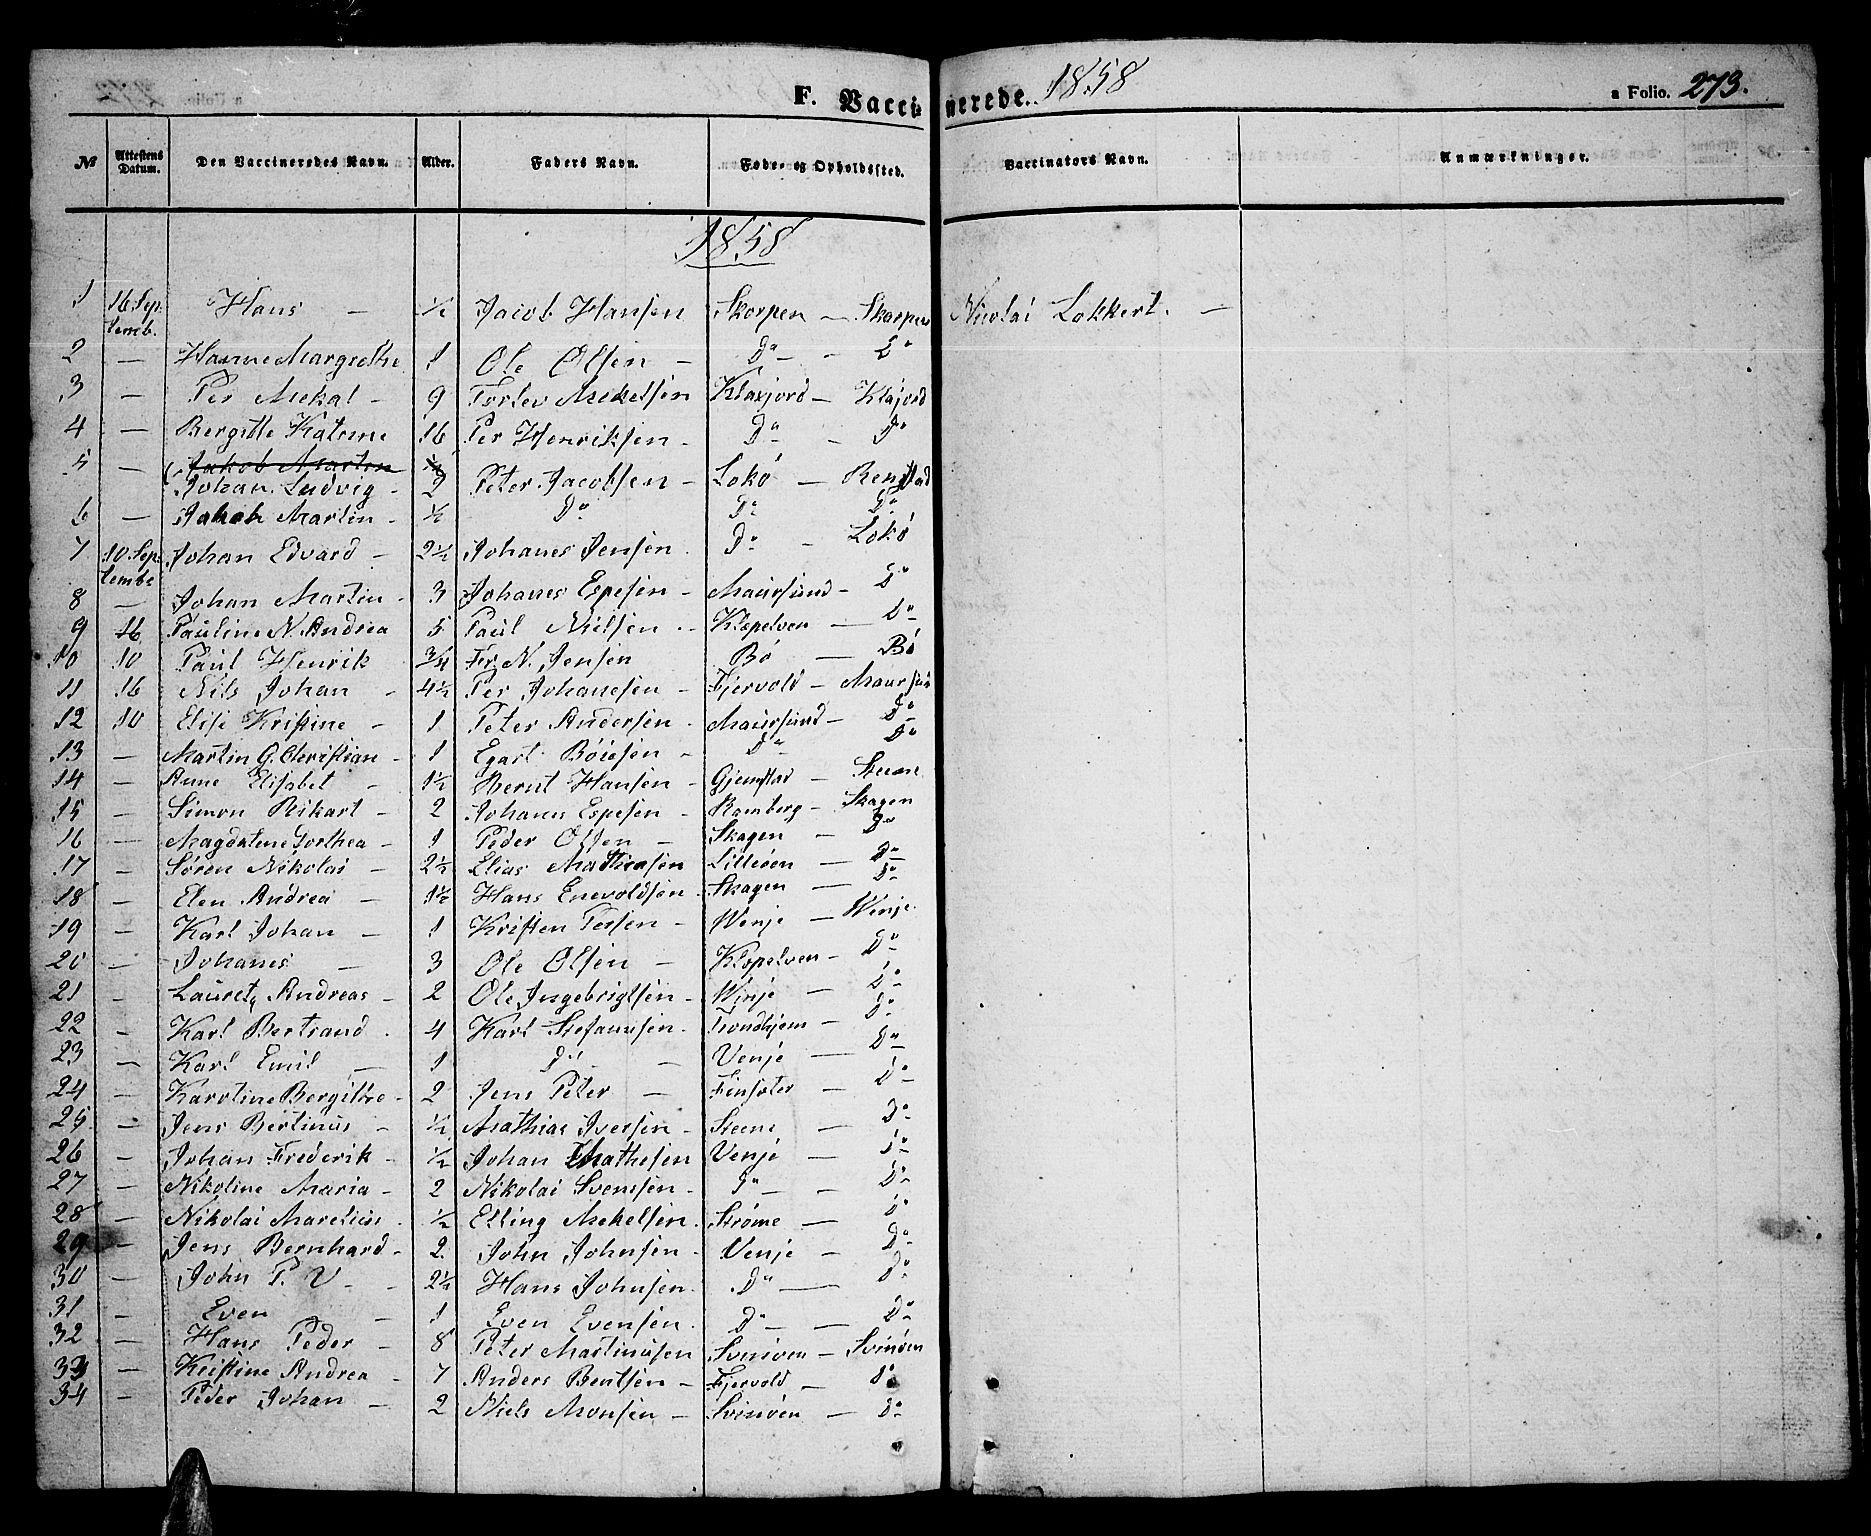 F. Vaccinerede. 1858
a Folio. 273.
№ Attestens Datum. Den Vaccineredes Navn. Alder. Faders Navn. Føde- og Opholdssted. Vaccinators Navn. Anmærkninger.
1858
1 16 Septemb. Hans — ½ Jacob Hansen Skorpen — Skorpen Nicolai Lokkert. —
2 — Hanne Margrethe 1 Ole Olsen — Do — Do
3 — Per Mekal — 9 Torlev Mekelsen Klaxjord — Klajord
4 — Bergitte Katrine 16 Per Henriksen — Do — Do
5 — Jakob Martin
Johan Ludvig — 2 Peter Jacobsen — Lokø — Renstad
6 — Jakob Martin — ½ Do Do Do
7 10 Septembr Johan Edvard — 2½ Johanes Jensen Do — Lokø
8 — Johan Martin — 3 Johanes Espesen — Maursund — Do
9 16 Pauline N. Andrea 5 Paul Nielsen — Klæpelven — Do
10 10 Paul Henrik 3/4 Fr. N. Jensen Bø — Bø
11 16 Nils Johan — 4½ Per Johanesen — Fjervold — Maursun
12 10 Elise Kristine — 1 Peter Andersen — Maursund — Do
13 — Martin G. Christian — 1 Egart Böiesen — Do Do
14 — Anne Elisabet — 1½ Bernt Hansen — Gjemstad — Steene
15 — Simon Rikart — 2 Johanes Espesen — Ramberg — Skagen
16 — Magdalene Dorthea — 1 Peder Olsen — Skagen — Do
17 — Sören Nikolai — 2½ Elias Mathiesen Lilleöen — Do
18 — Elen Andrea — 1½ Hans Enevoldsen Skagen — Do
19 — Karl Johan — 1 Kristen Persen — Wenje — Wenje
20 — Johanes — 3 Ole Olsen — Klæpelven — Do
21 — Lauret Andreas — 2 Ole Ingebrigtsen — Winje — Do
22 — Karl Bertrand — 4 Karl Stefanusen — Trondhjem — Do
23 — Karl Emil — 1 Do — Venje — Do
24 — Karoline Bergitthe — 2 Jens Peter — Finsæter — Do
25 — Jens Bertinus — ½ Mathias Iversen — Steene — Do
26 — Johan Frederik — ½ Johan Mathesen Venje — Do
27 — Nikoline Maria — 2 Nikolai Svensen — Do — Do
28 — Nikolai Marelius — ½ Elling Mekelsen — Strøme — Do
29 — Jens Bernhard — 2 John Johnsen — Venje — Do
30 — John P. V — 2½ Hans Johnsen — Do — Do
31 — Even — 1 Even Evensen — Do — Do
32 — Hans Peder — 8 Peter Martinusen Svinöen — Svinöen
33 — Kristine Andrea — 7 Anders Bentsen — Fjervold — Do
34 — Peder Johan — 2 Niels Monsen — Svinöen — Do